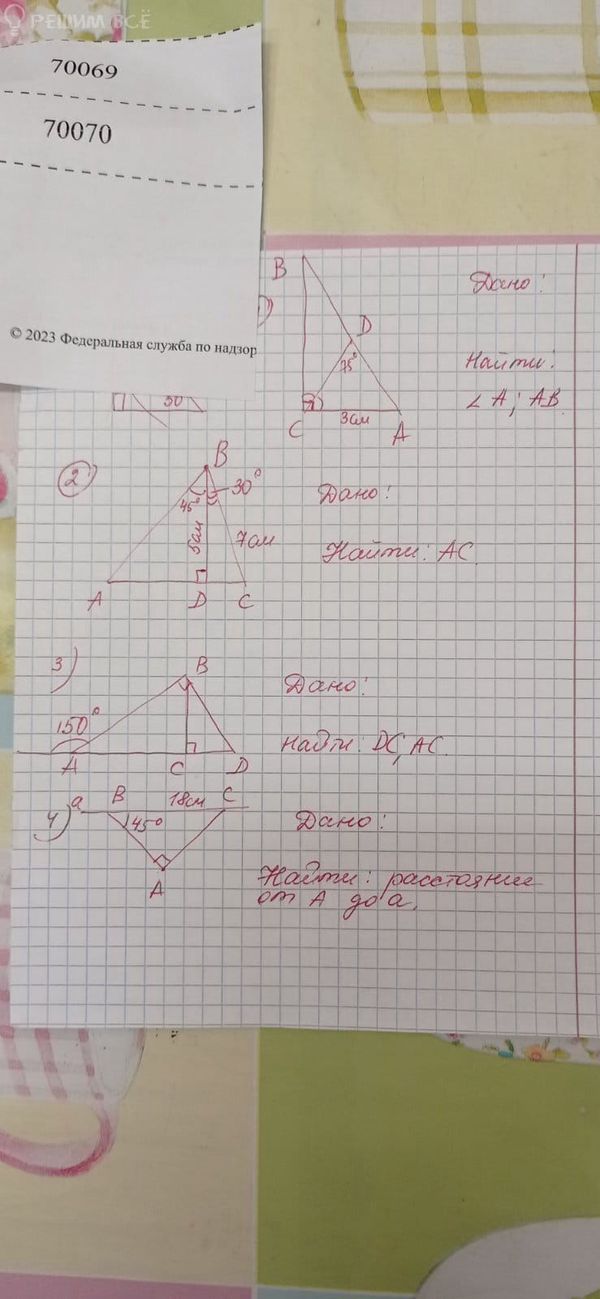 РЕШИМ ВСЁ
70069
70070
© 2023 Федеральная служба по надзор
B
D
75°
C
3см
A
Дано:
Найти:
∠A; AB
30
2
B
45°
30°
5см
7см
A
D
C
Дано:
Найти: AC.
3)
B
150°
A
C
D
Дано:
Найти: DC, AC.
4)
a
B
18см
C
45°
A
Дано:
Найти: расстояние
от A до a.